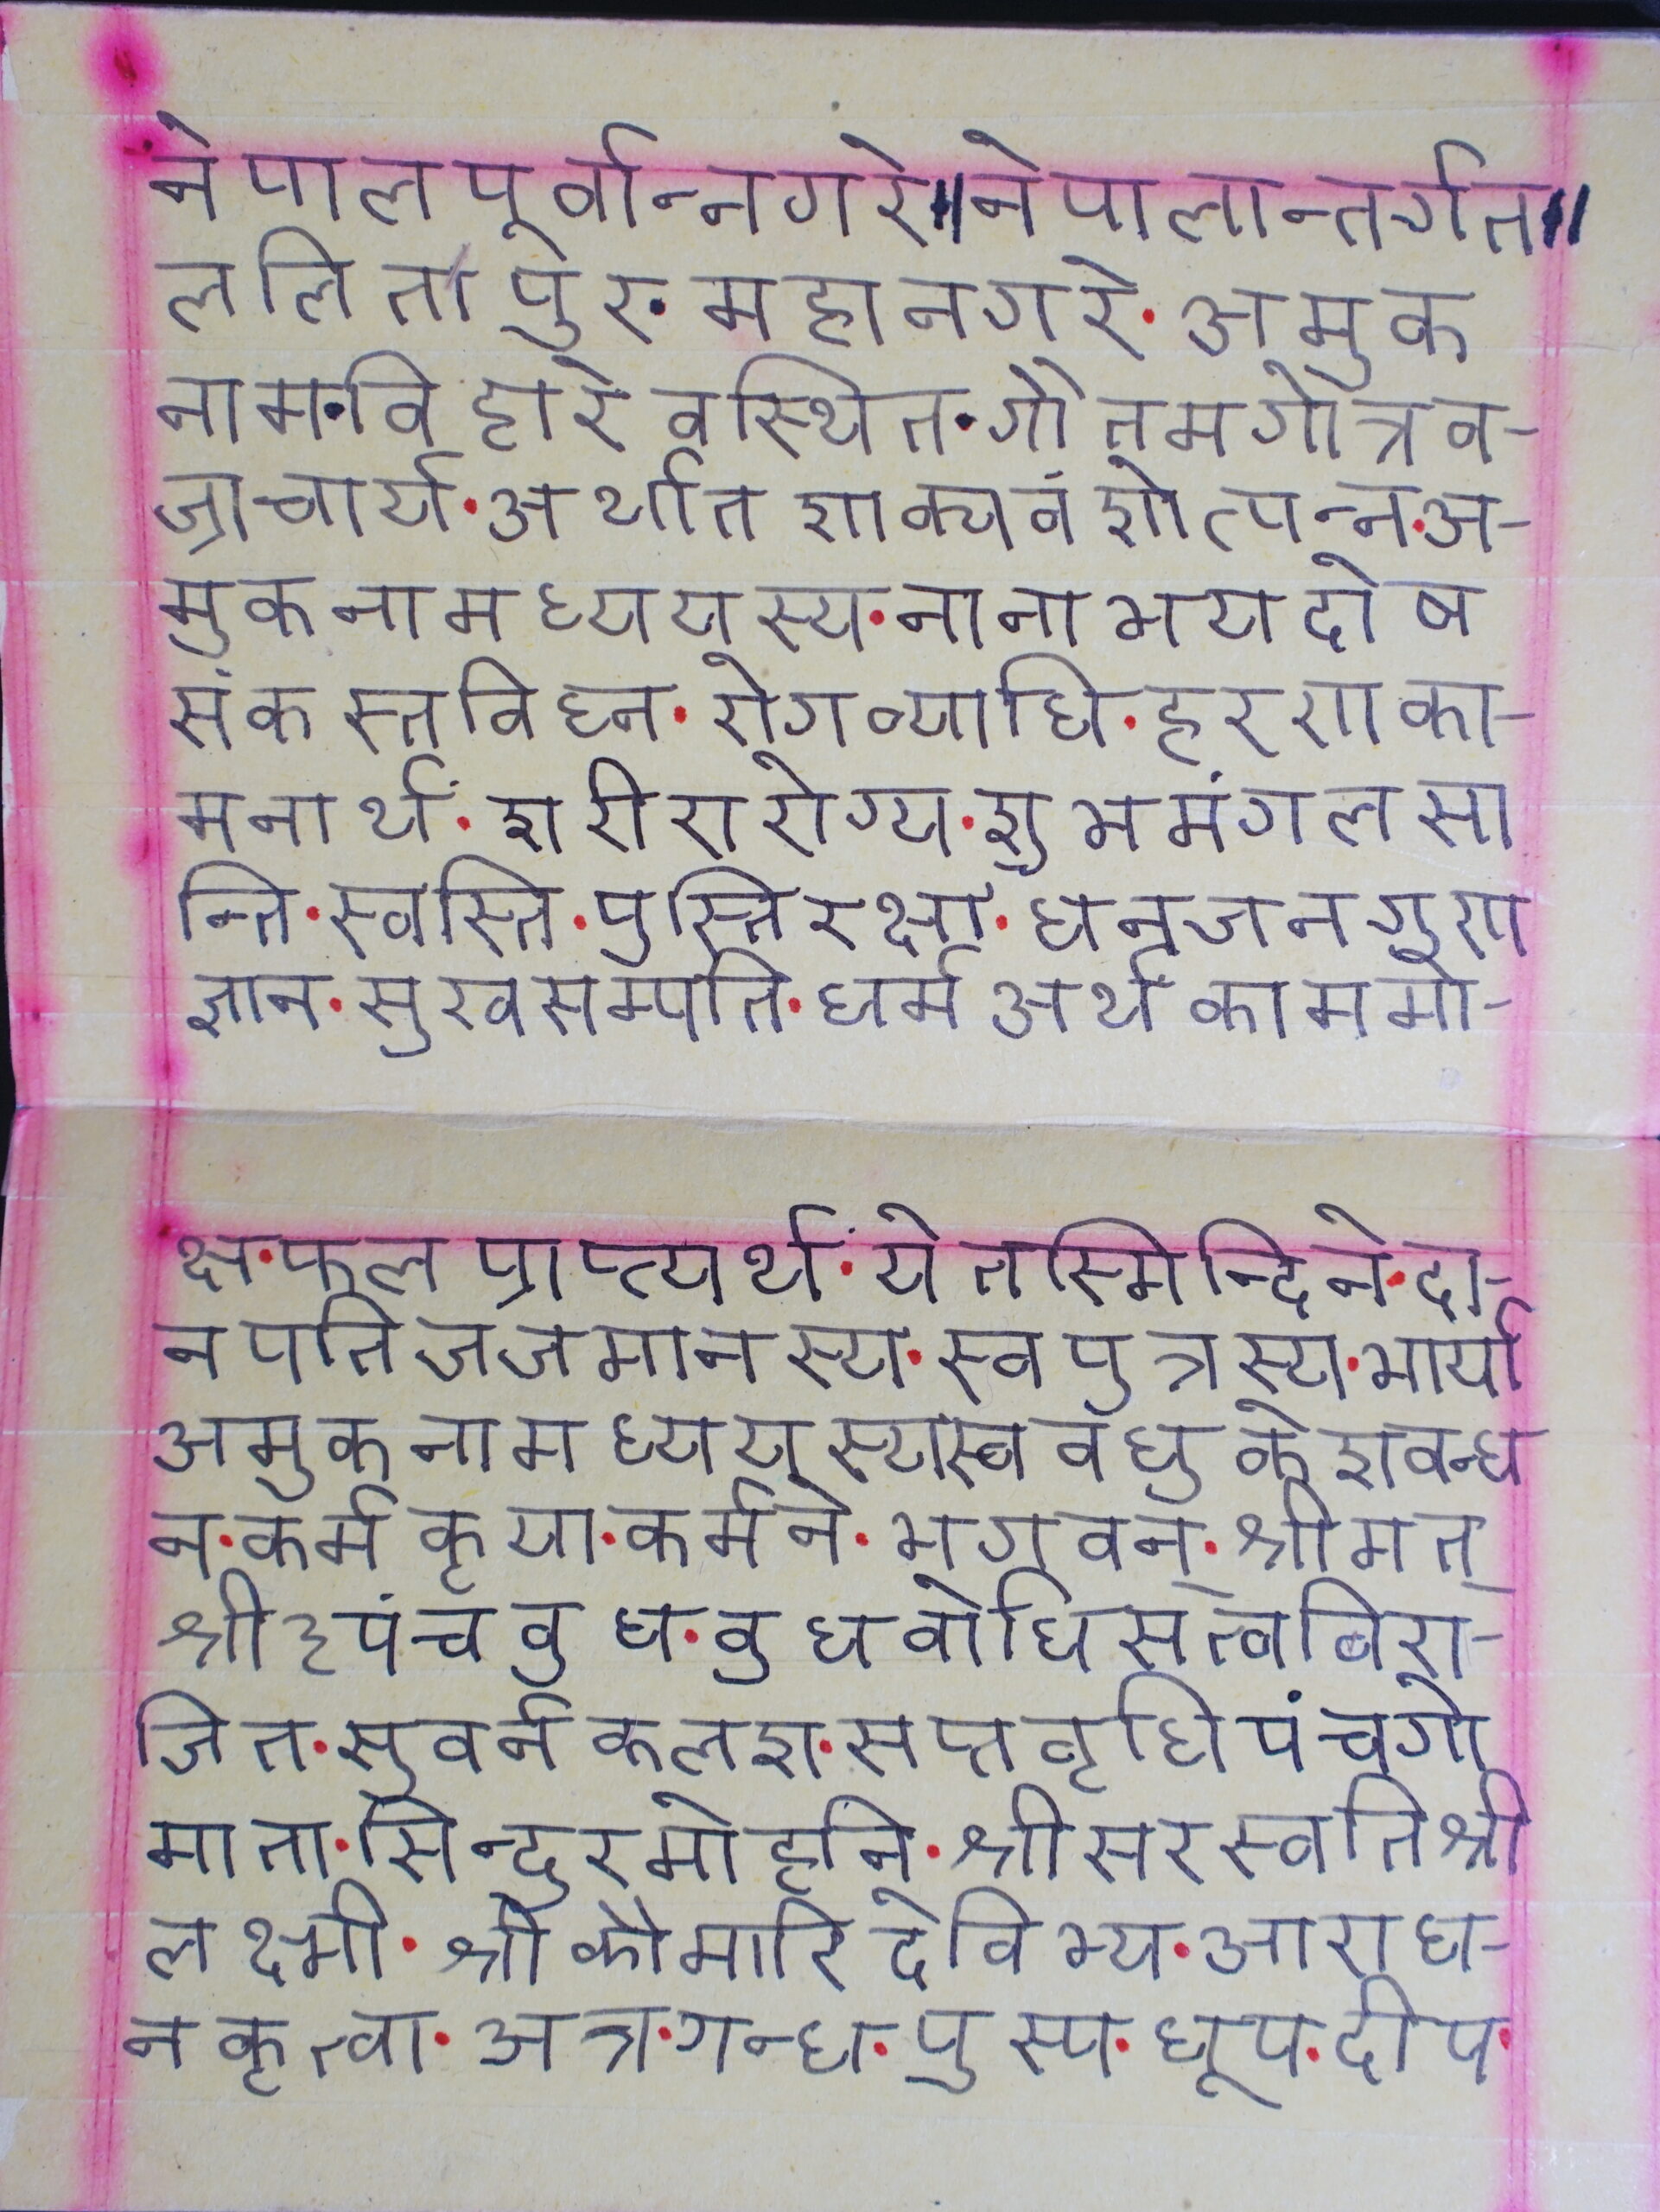 नेपालपूर्वान्नगरे॥नेपालान्तर्गत॥
ललितापुर·महानगरे·अमुक
नाम·विहारेवस्थित·गौतमगोत्रव-
ज्राचार्य·अर्थात शाक्यवंशोत्पन्न·अ-
मुकनामध्ययस्य·नानाभयदोष
संकस्तविघ्न·रोगव्याधि·हरणका-
मनार्थं·शरीरारोग्य·शुभमंगलसा
न्ति·स्वस्ति·पुस्तिरक्षां·धनजनगुण
ज्ञान·सुखसम्पति·धर्म अर्थ काममो-
क्ष·फलप्राप्त्यर्थं·येतस्मिन्दिने·दा-
नपतिजजमानस्य·स्वपुत्रस्य·भार्या
अमुकनामध्ययस्यास्व वंधुकेशवन्ध
न·कर्मकृया·कर्मने·भगवन्·श्रीमत्
श्री३पंचवुध·वुधवोधिसत्वविरा-
जित·सुवर्नकलश·सप्तवृधिपंचगो
माता·सिन्दुरमोहनि·श्रीसरस्वतिश्री
लक्ष्मी·श्रीकौमारिदेविभ्य·आराध-
नकृत्वा·अत्र·गन्ध·पुस्प·धूप·दीप·